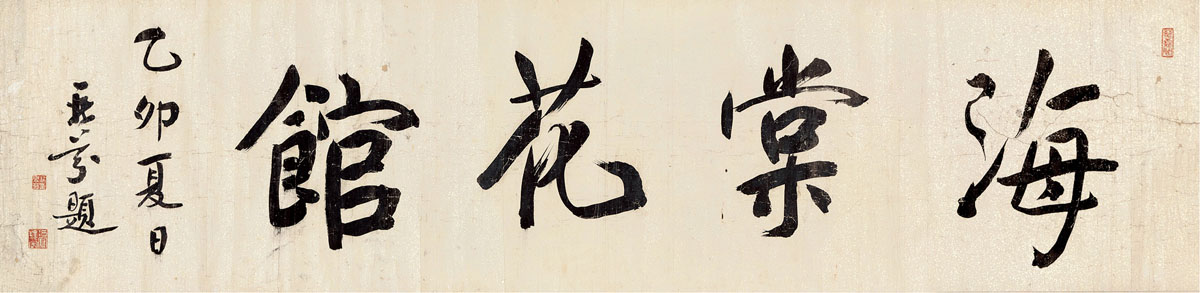 海棠花館
乙卯夏日
題